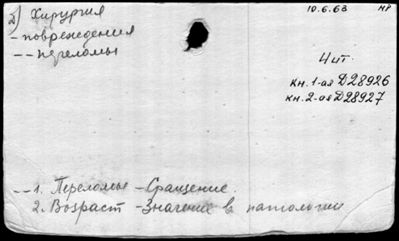 2) Хирургия
10.6.63 МР
- повреждения
-- переломы
4 ит.
кн. 1-ая Д28926
кн. 2-ая Д28927
-- 1. Переломы - Сращение.
2. Возраст - Значение в патологии